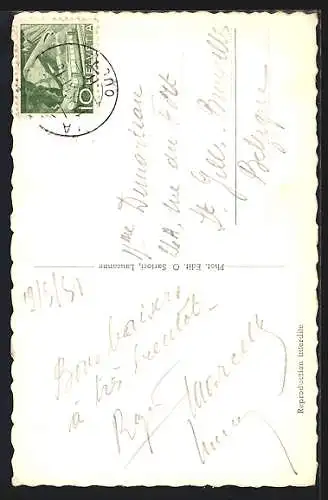 19/5/51
Bons baisers
à très bientôt
Phot. Edit. O. Sartori, Lausanne
Mme
rue du Fort
St Gilles. Bruxelles
Belgique
HELVETIA
10
Reproduction interdite